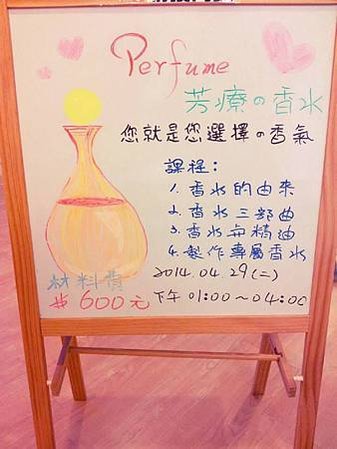 Perfume
芳療の香水
您就是您選擇の香氣
課程:
1. 香水的由來
2. 香水三部曲
3. 香水與精油
4. 製作專屬香水
2014.04.29(二)
下午 01:00~04:00
材料費
$600元